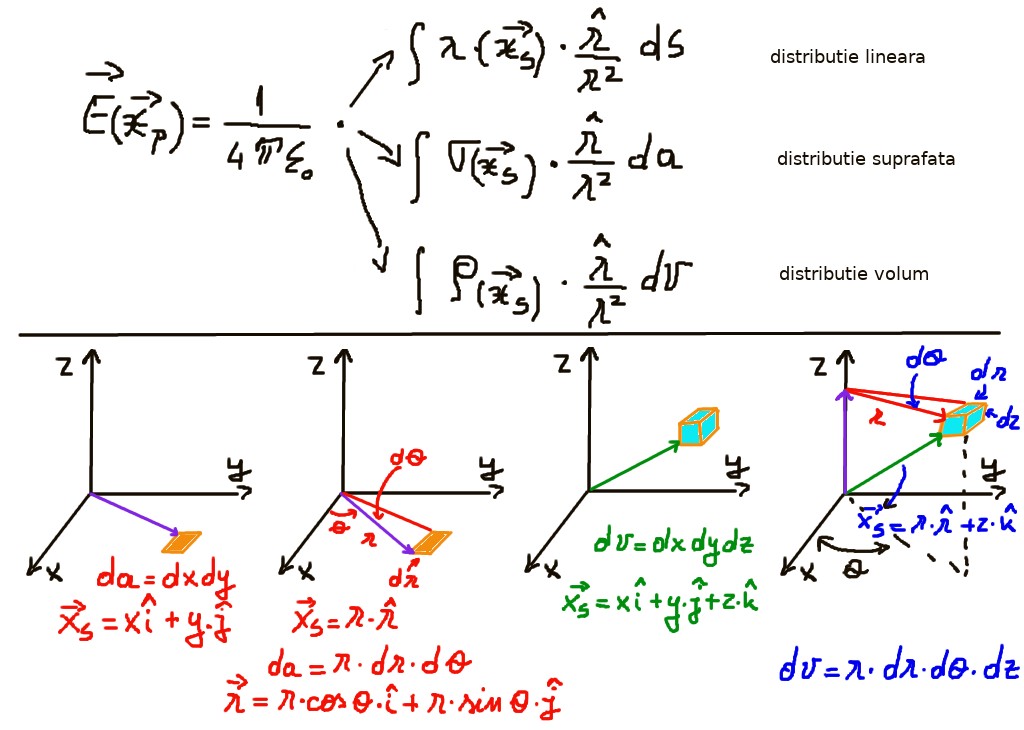 ∫ λ(x⃗_s) · r̂/r² ds distributie lineara
E⃗(x⃗_p) = 1/(4πε₀) ·
∫ σ(x⃗_s) · r̂/r² da distributie suprafata
∫ ρ(x⃗_s) · r̂/r² dv distributie volum
z
y
x
da = dx dy
x⃗_s = x î + y · ĵ
z
y
x
dθ
θ
r
dr
x⃗_s = r · r̂
da = r · dr · dθ
r⃗ = r · cos θ · î + r · sin θ · ĵ
z
y
x
dv = dx dy dz
x⃗_s = x î + y · ĵ + z · k̂
z
y
x
dθ
dr
dz
r
x⃗_s = r · r̂ + z · k̂
θ
dv = r · dr · dθ · dz